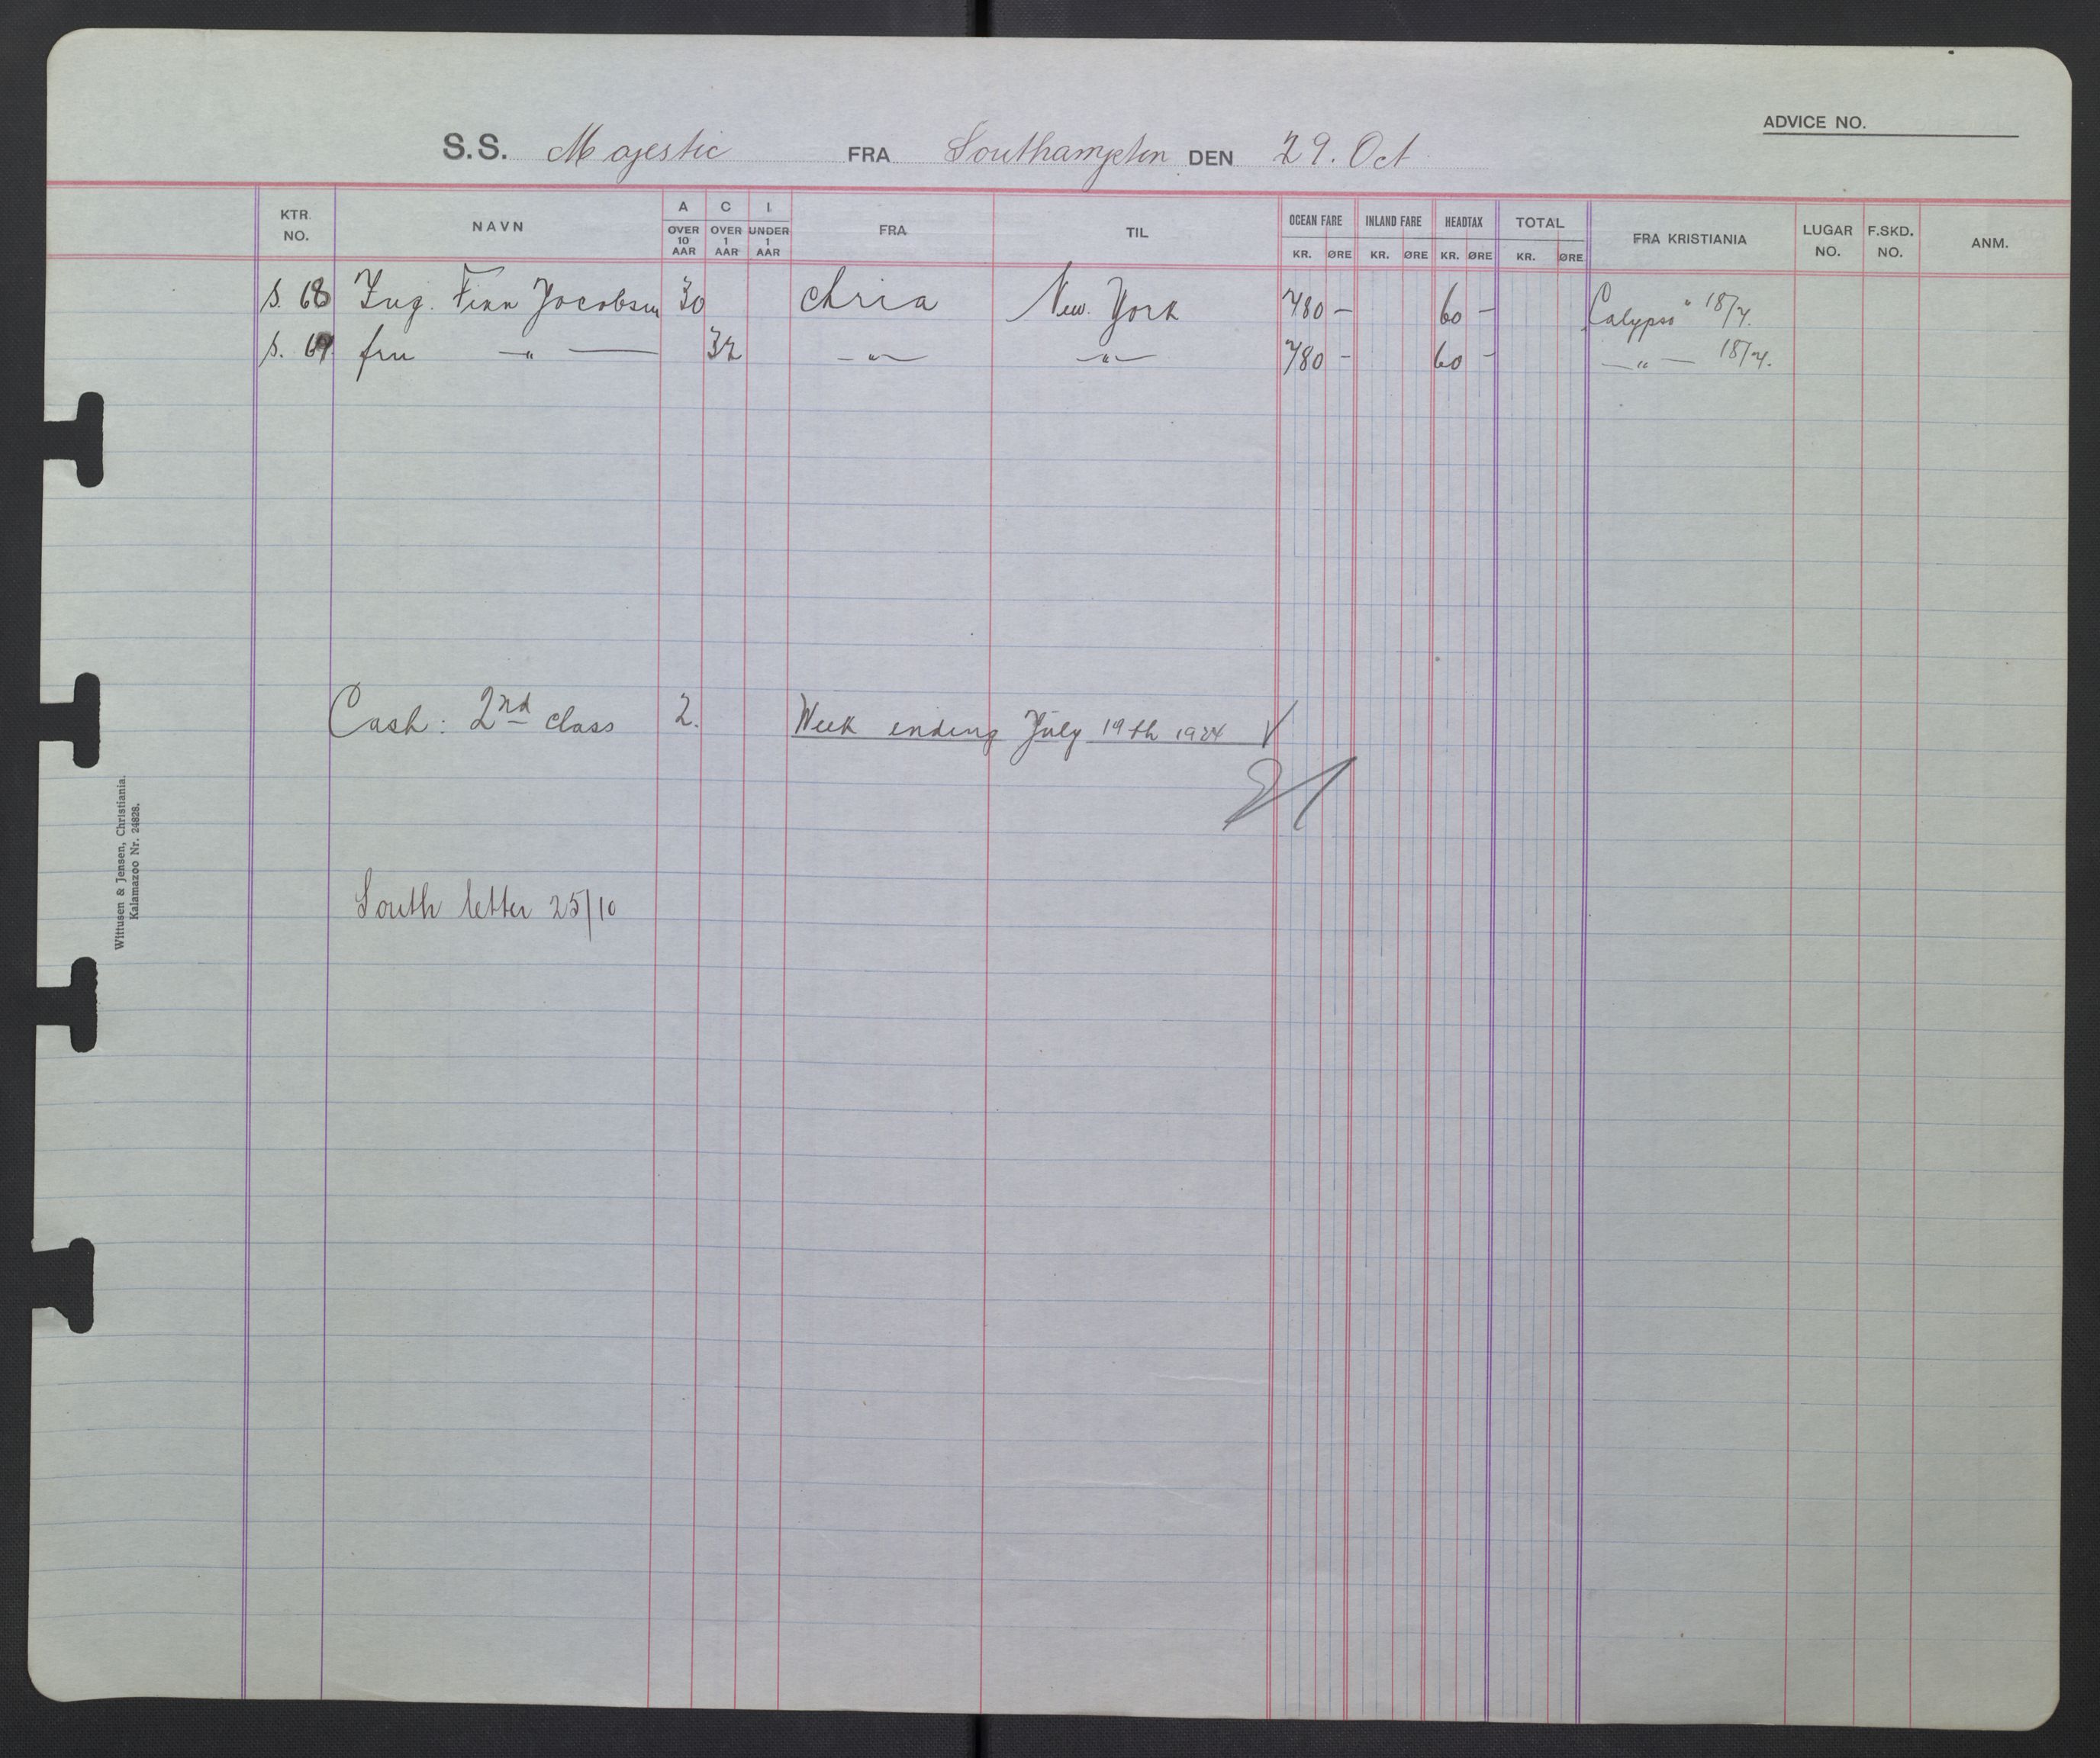 ADVICE NO.
S.S. Majestic FRA Southampton DEN 29. Oct
KTR. NO. NAVN A OVER 10 AAR C OVER 1 AAR I UNDER 1 AAR FRA TIL OCEAN FARE KR. ØRE INLAND FARE KR. ØRE HEADTAX KR. ØRE TOTAL KR. ØRE FRA KRISTIANIA LUGAR NO. F.SKD. NO. ANM.
S. 68 Ing. Finn Jacobsen 30 Chria New York 780 — 60 — Calypso" 18/7.
S. 69 fru —"— 32 —"— —"— 780 — 60 — —"— 18/7.
Cash: 2nd class 2. Week ending July 19th 1924 V
South letter 25/10
Wittusen & Jensen, Christiania.
Kalamazoo Nr. 24828.